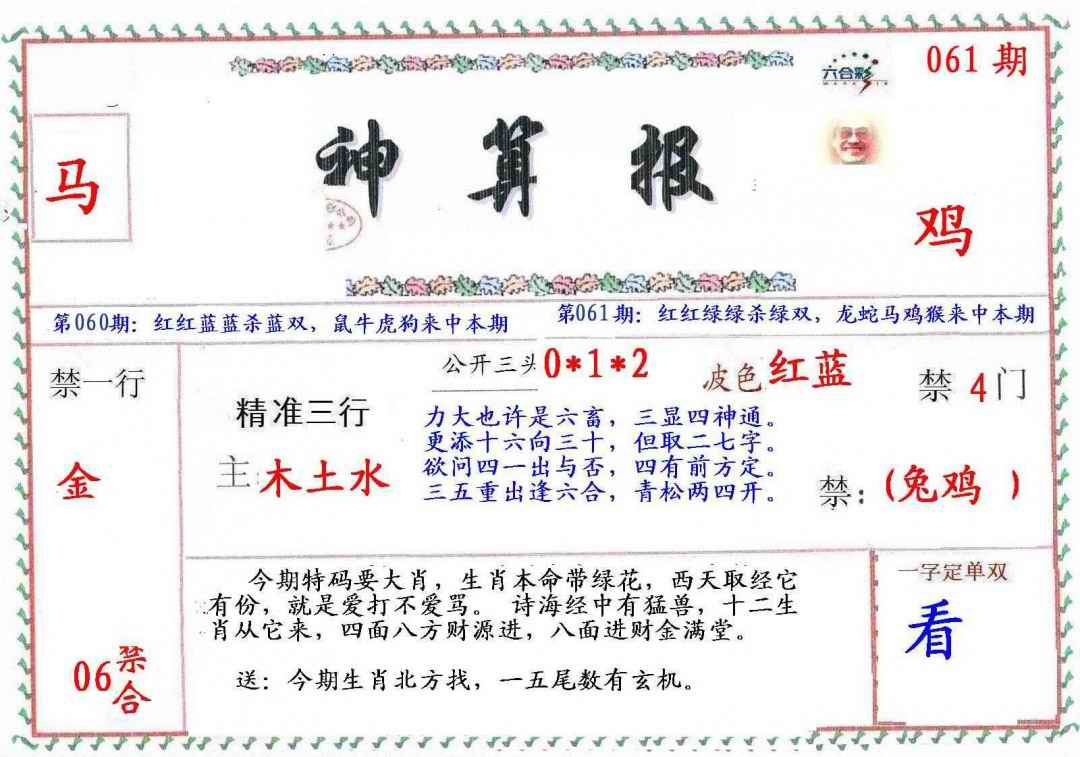 061 期
六合彩
神算报
马
鸡
第060期：红红蓝蓝杀蓝双，鼠牛虎狗来中本期
第061期：红红绿绿杀绿双，龙蛇马鸡猴来中本期
禁一行
金
06 禁合
公开三头 0*1*2
波色 红蓝
精准三行
主:木土水
力大也许是六畜，三显四神通。
更添十六向三十，但取二七字。
欲问四一出与否，四有前方定。
三五重出逢六合，青松两四开。
禁 4 门
禁:(兔鸡 )
今期特码要大肖，生肖本命带绿花，西天取经它
有份，就是爱打不爱骂。 诗海经中有猛兽，十二生
肖从它来，四面八方财源进，八面进财金满堂。
送：今期生肖北方找，一五尾数有玄机。
一字定单双
看